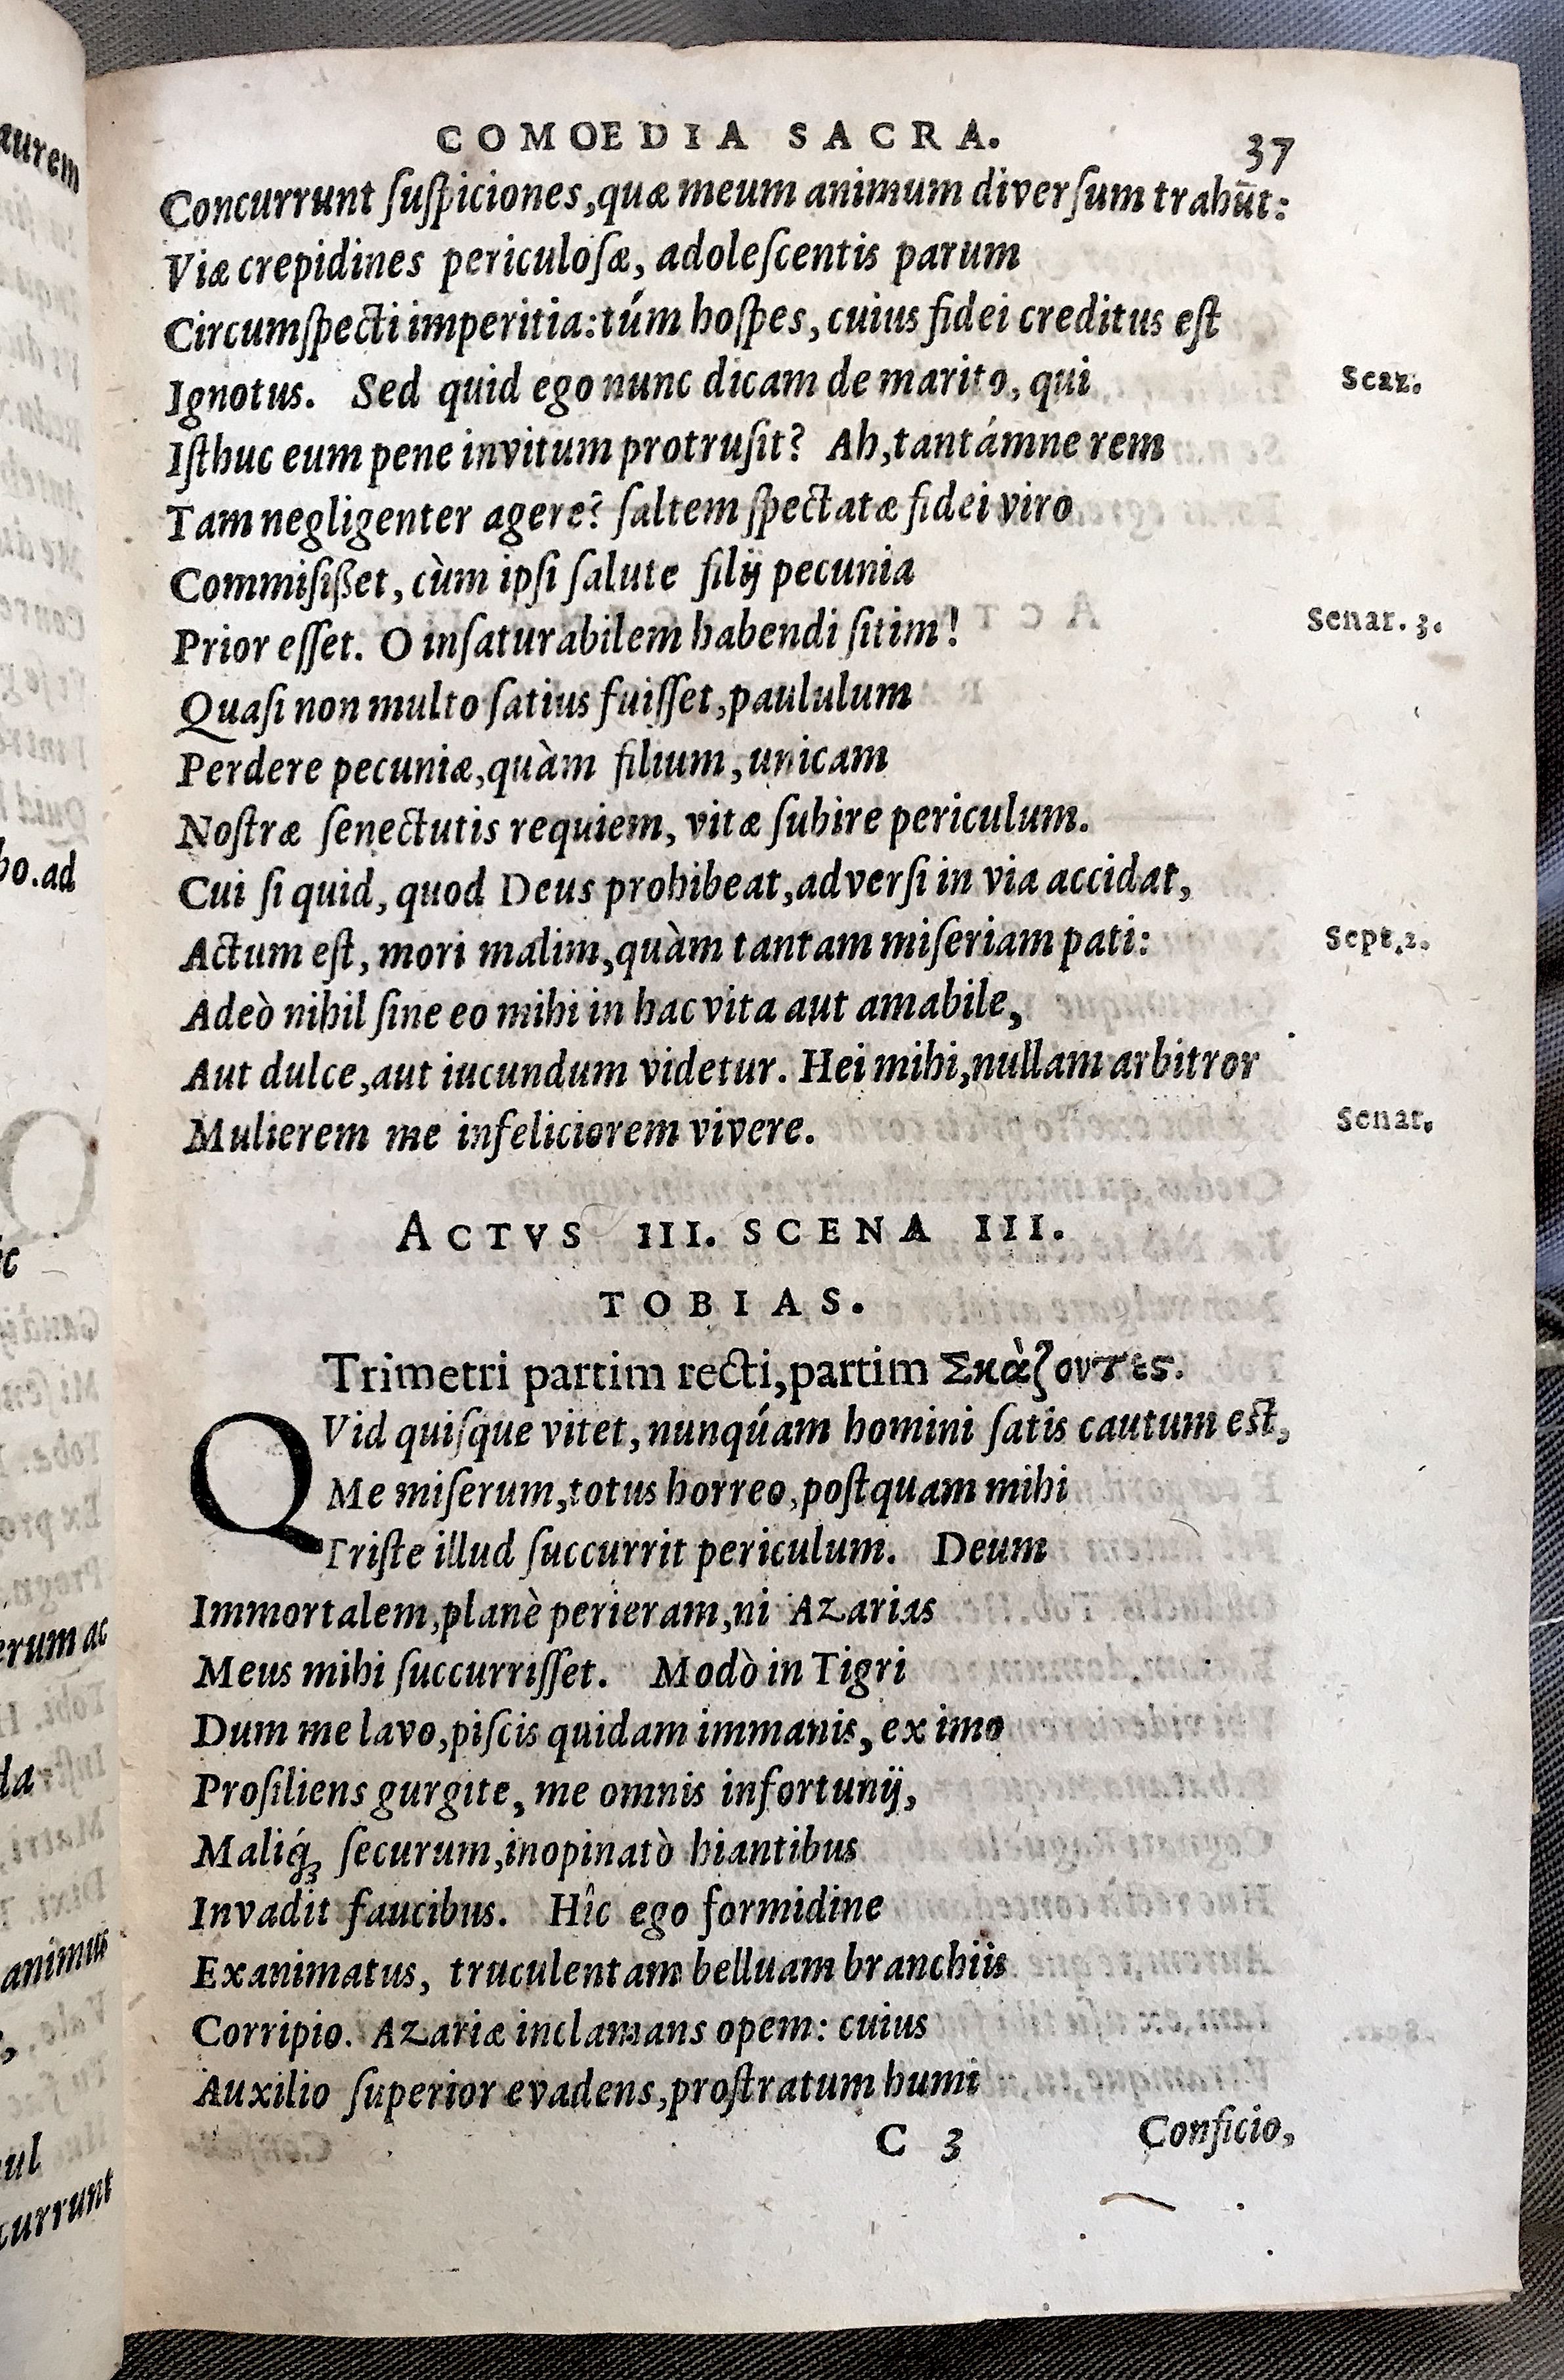 COMOEDIA SACRA. 37
Concurrunt ſuſpiciones, quæ meum animum diverſum trahūt:
Viæ crepidines periculoſæ, adoleſcentis parum
Circumſpecti imperitia: túm hoſpes, cuius fidei creditus eſt
Ignotus. Sed quid ego nunc dicam de marito, qui Scaz.
Iſthuc eum pene invitum protruſit? Ah, tantámne rem
Tam negligenter agere? ſaltem ſpectatæ fidei viro
Commiſiſſet, cùm ipſi ſalute filij pecunia
Prior eſſet. O inſaturabilem habendi ſitim! Senar. 3.
Quaſi non multo ſatius fuiſſet, paululum
Perdere pecuniæ, quàm filium, unicam
Noſtræ ſenectutis requiem, vitæ ſubire periculum.
Cui ſi quid, quod Deus prohibeat, adverſi in via accidat,
Actum eſt, mori malim, quàm tantam miſeriam pati: Sept. 2.
Adeò nihil ſine eo mihi in hac vita aut amabile,
Aut dulce, aut iucundum videtur. Hei mihi, nullam arbitror
Mulierem me infeliciorem vivere. Senar.
ACTVS III. SCENA III.
TOBIAS.
Trimetri partim recti, partim Σκὰζοντες.
QVid quiſque vitet, nunqúam homini ſatis cautum eſt,
Me miſerum, totus horreo, poſtquam mihi
Triſte illud ſuccurrit periculum. Deum
Immortalem, planè perieram, ni Azarias
Meus mihi ſuccurriſſet. Modò in Tigri
Dum me lavo, piſcis quidam immanis, ex imo
Proſiliens gurgite, me omnis infortunij,
Maliq́ꝫ ſecurum, inopinatò hiantibus
Invadit faucibus. Hîc ego formidine
Exanimatus, truculentam belluam branchiis
Corripio. Azariæ inclamans opem: cuius
Auxilio ſuperior evadens, proſtratum humi
C 3 Conficio,